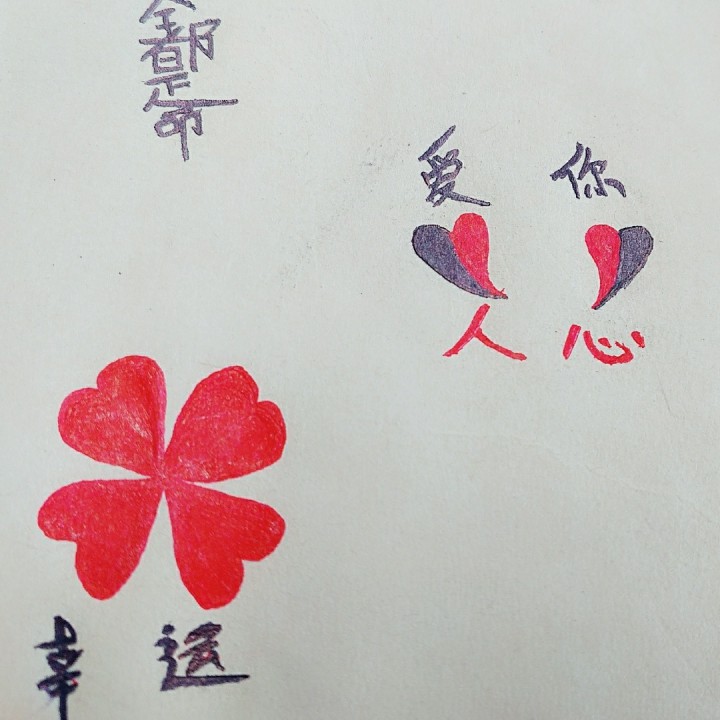 全都是命
爱 你
人 心
幸 運